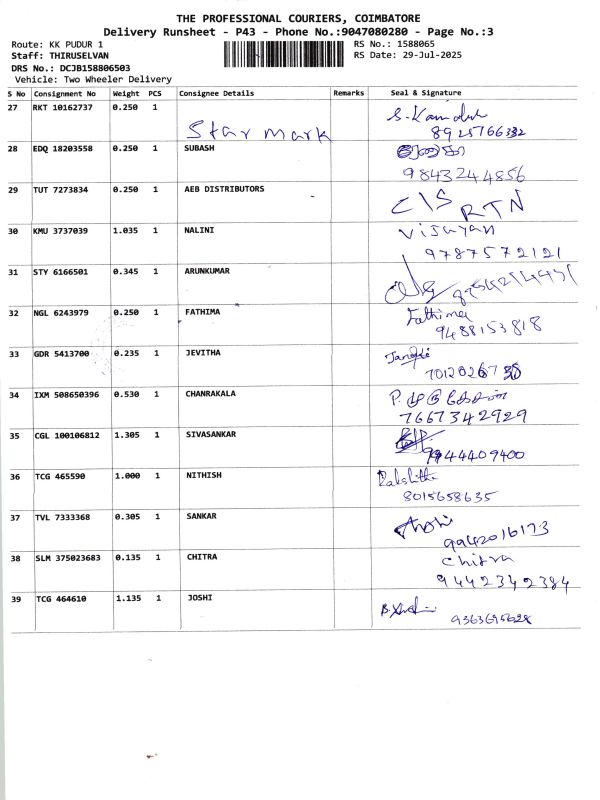 THE PROFESSIONAL COURIERS, COIMBATORE
Delivery Runsheet - P43 - Phone No.:9047080280 - Page No.:3
Route: KK PUDUR 1 RS No.: 1588065
Staff: THIRUSELVAN RS Date: 29-Jul-2025
DRS No.: DCJB158806503
Vehicle: Two Wheeler Delivery
S No Consignment No Weight PCS Consignee Details Remarks Seal & Signature
27 RKT 10162737 0.250 1 Star mark
8925766332
28 EDQ 18203558 0.250 1 SUBASH
9843244856
29 TUT 7273834 0.250 1 AEB DISTRIBUTORS C/S RTN
30 KMU 3737039 1.035 1 NALINI Vijayan
9787572121
31 STY 6166501 0.345 1 ARUNKUMAR
32 NGL 6243979 0.250 1 FATHIMA Fathima
9488153818
33 GDR 5413700 0.235 1 JEVITHA
34 IXM 508650396 0.530 1 CHANRAKALA
7667342929
35 CGL 100106812 1.305 1 SIVASANKAR
9944409400
36 TCG 465590 1.000 1 NITHISH Rakshitha
8015658635
37 TVL 7333368 0.305 1 SANKAR
9942016173
38 SLM 375023683 0.135 1 CHITRA Chitra
9442342384
39 TCG 464610 1.135 1 JOSHI
9363695628